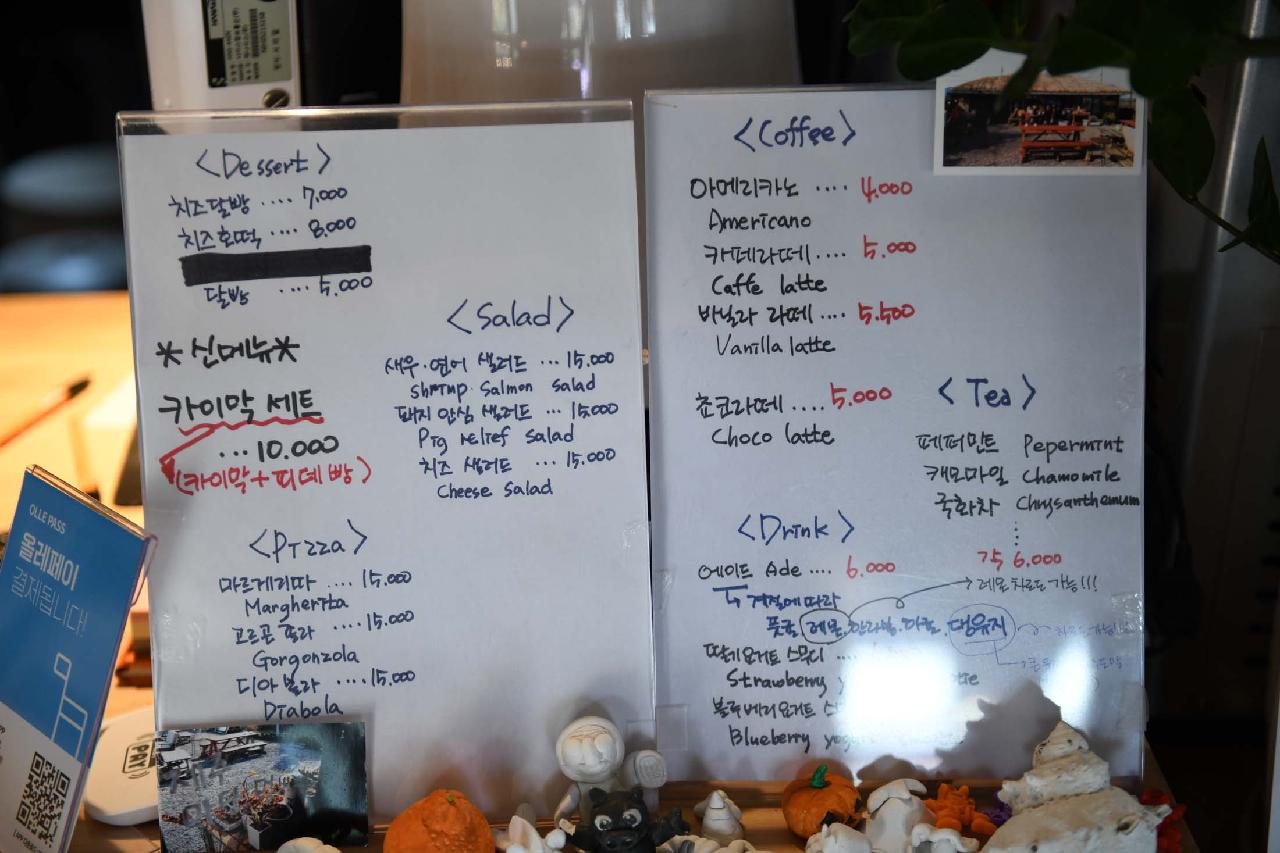 <Dessert>
치즈달빵 .... 7.000
치즈호떡 .... 8.000
달빵 .... 5.000
*신메뉴*
카이막 세트
... 10.000
(카이막+피데빵)
<Salad>
새우·연어 샐러드 ... 15.000
shrimp Salmon Salad
돼지 안심 샐러드 ... 15.000
Pig relief Salad
치즈 샐러드 ... 15.000
Cheese Salad
<Pizza>
마르게리따 .... 15.000
Margherita
고르곤 졸라 .... 15.000
Gorgonzola
디아볼라 .... 15.000
Diabola
<Coffee>
아메리카노 .... 4.000
Americano
카페라떼 .... 5.000
Caffe latte
바닐라 라떼 .... 5.500
Vanilla latte
초코라떼 .... 5.000
Choco latte
<Tea>
페퍼민트 Pepermint
캐모마일 Chamomile
국화차 Chrysanthemum
각 6.000
<Drink>
에이드 Ade .... 6.000
레몬차로도 가능!!!
계절에 따라
풋귤, 레몬, 한라봉, 댕유지
딸기요거트 스무디 ....
Strawberry
블루베리요거트
Blueberry
OLLE PASS
올레페이
결제됩니다!
PAY